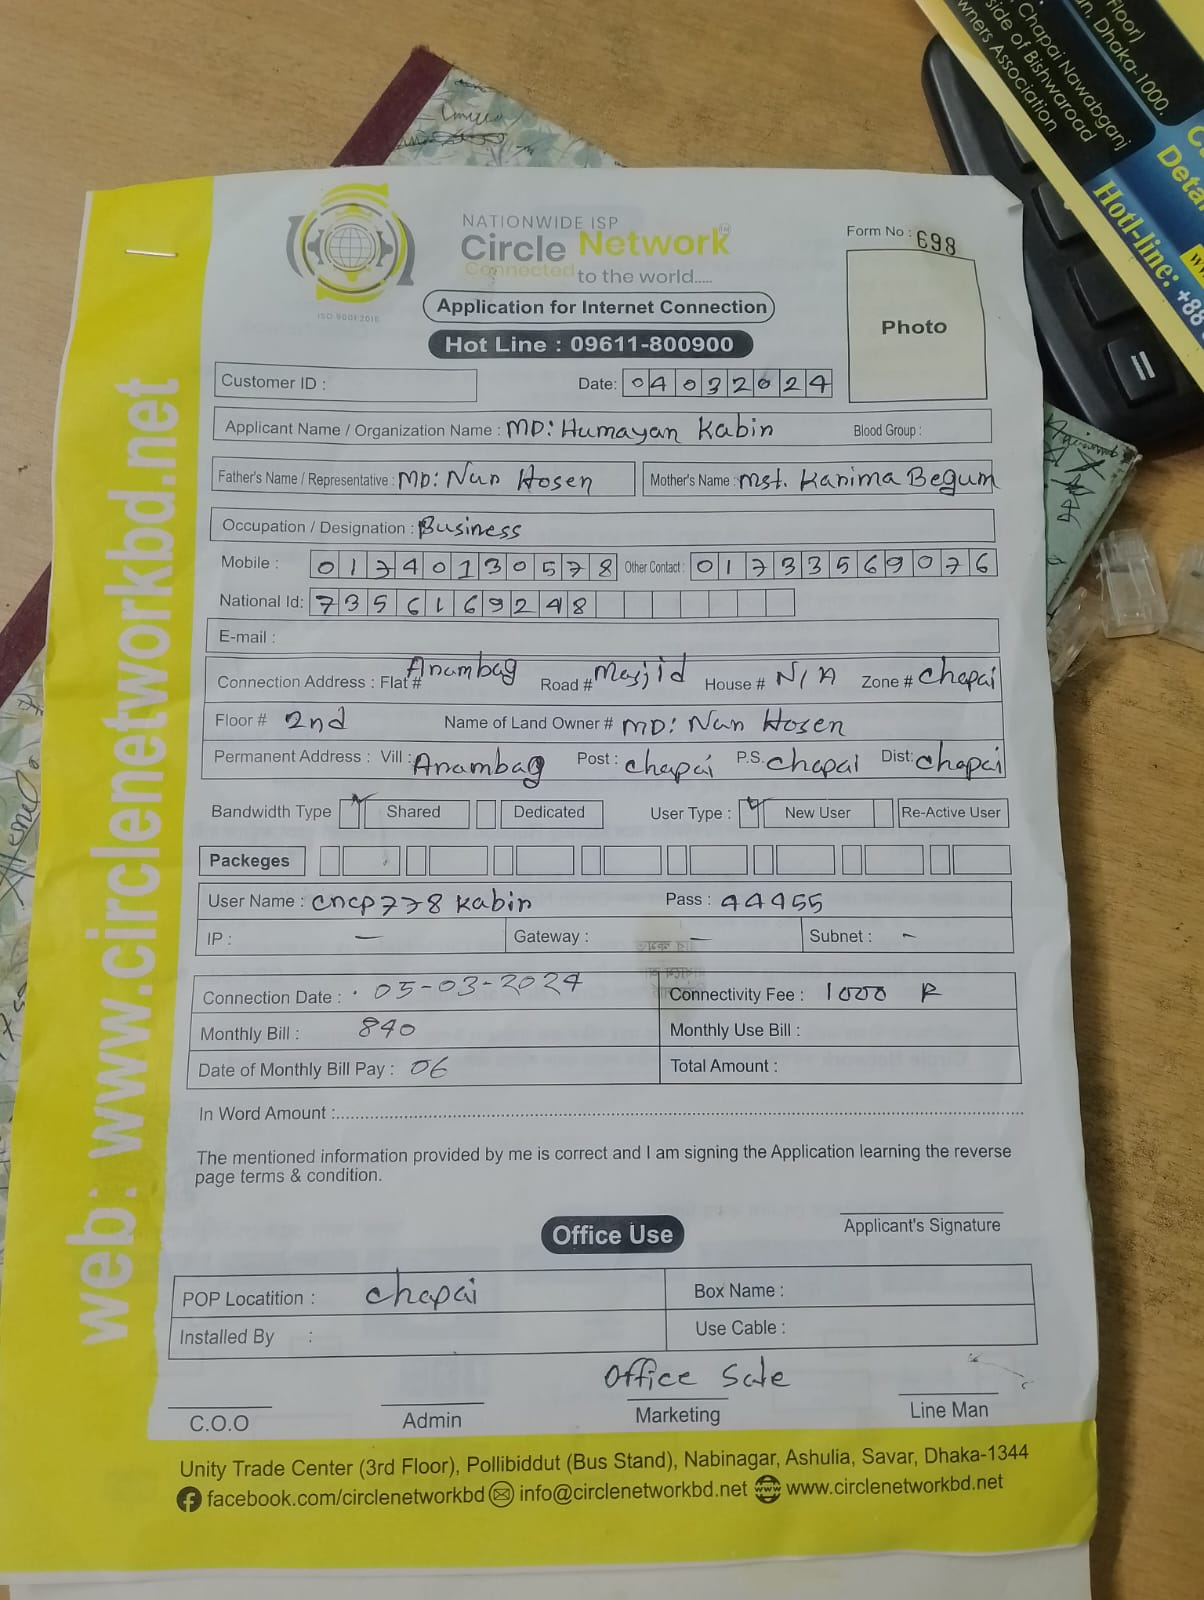 Floor)
an, Dhaka-1000.
Chapai Nawabganj
side of Bishwaroad
wners Association
Hotl-line: +88
web: www.circlenetworkbd.net
NATIONWIDE ISP
Circle Network
Connected to the world.....
ISO 9001:2015
Application for Internet Connection
Hot Line : 09611-800900
Form No : 698
Photo
Customer ID :
Date: 04032024
Applicant Name / Organization Name : MD: Humayan Kabin Blood Group :
Father's Name / Representative : MD: Nun Hosen Mother's Name : Mst. Kanima Begum
Occupation / Designation : Business
Mobile : 01740130578 Other Contact : 01733569076
National Id: 7356169248
E-mail :
Connection Address : Flat # Anambag Road # Masjid House # N/A Zone # Chapai
Floor # 2nd Name of Land Owner # MD: Nun Hosen
Permanent Address : Vill : Anambag Post : chapai P.S. chapai Dist: chapai
Bandwidth Type Shared Dedicated User Type : New User Re-Active User
Packeges
User Name : cncp778 kabin Pass : 44455
IP : — Gateway : — Subnet : -
Connection Date : 05-03-2024 Connectivity Fee : 1000 R
Monthly Bill : 840 Monthly Use Bill :
Date of Monthly Bill Pay : 06 Total Amount :
In Word Amount :
The mentioned information provided by me is correct and I am signing the Application learning the reverse
page terms & condition.
Applicant's Signature
Office Use
POP Locatition : chapai Box Name :
Installed By : Use Cable :
Office Sale
C.O.O Admin Marketing Line Man
Unity Trade Center (3rd Floor), Pollibiddut (Bus Stand), Nabinagar, Ashulia, Savar, Dhaka-1344
facebook.com/circlenetworkbd info@circlenetworkbd.net www.circlenetworkbd.net